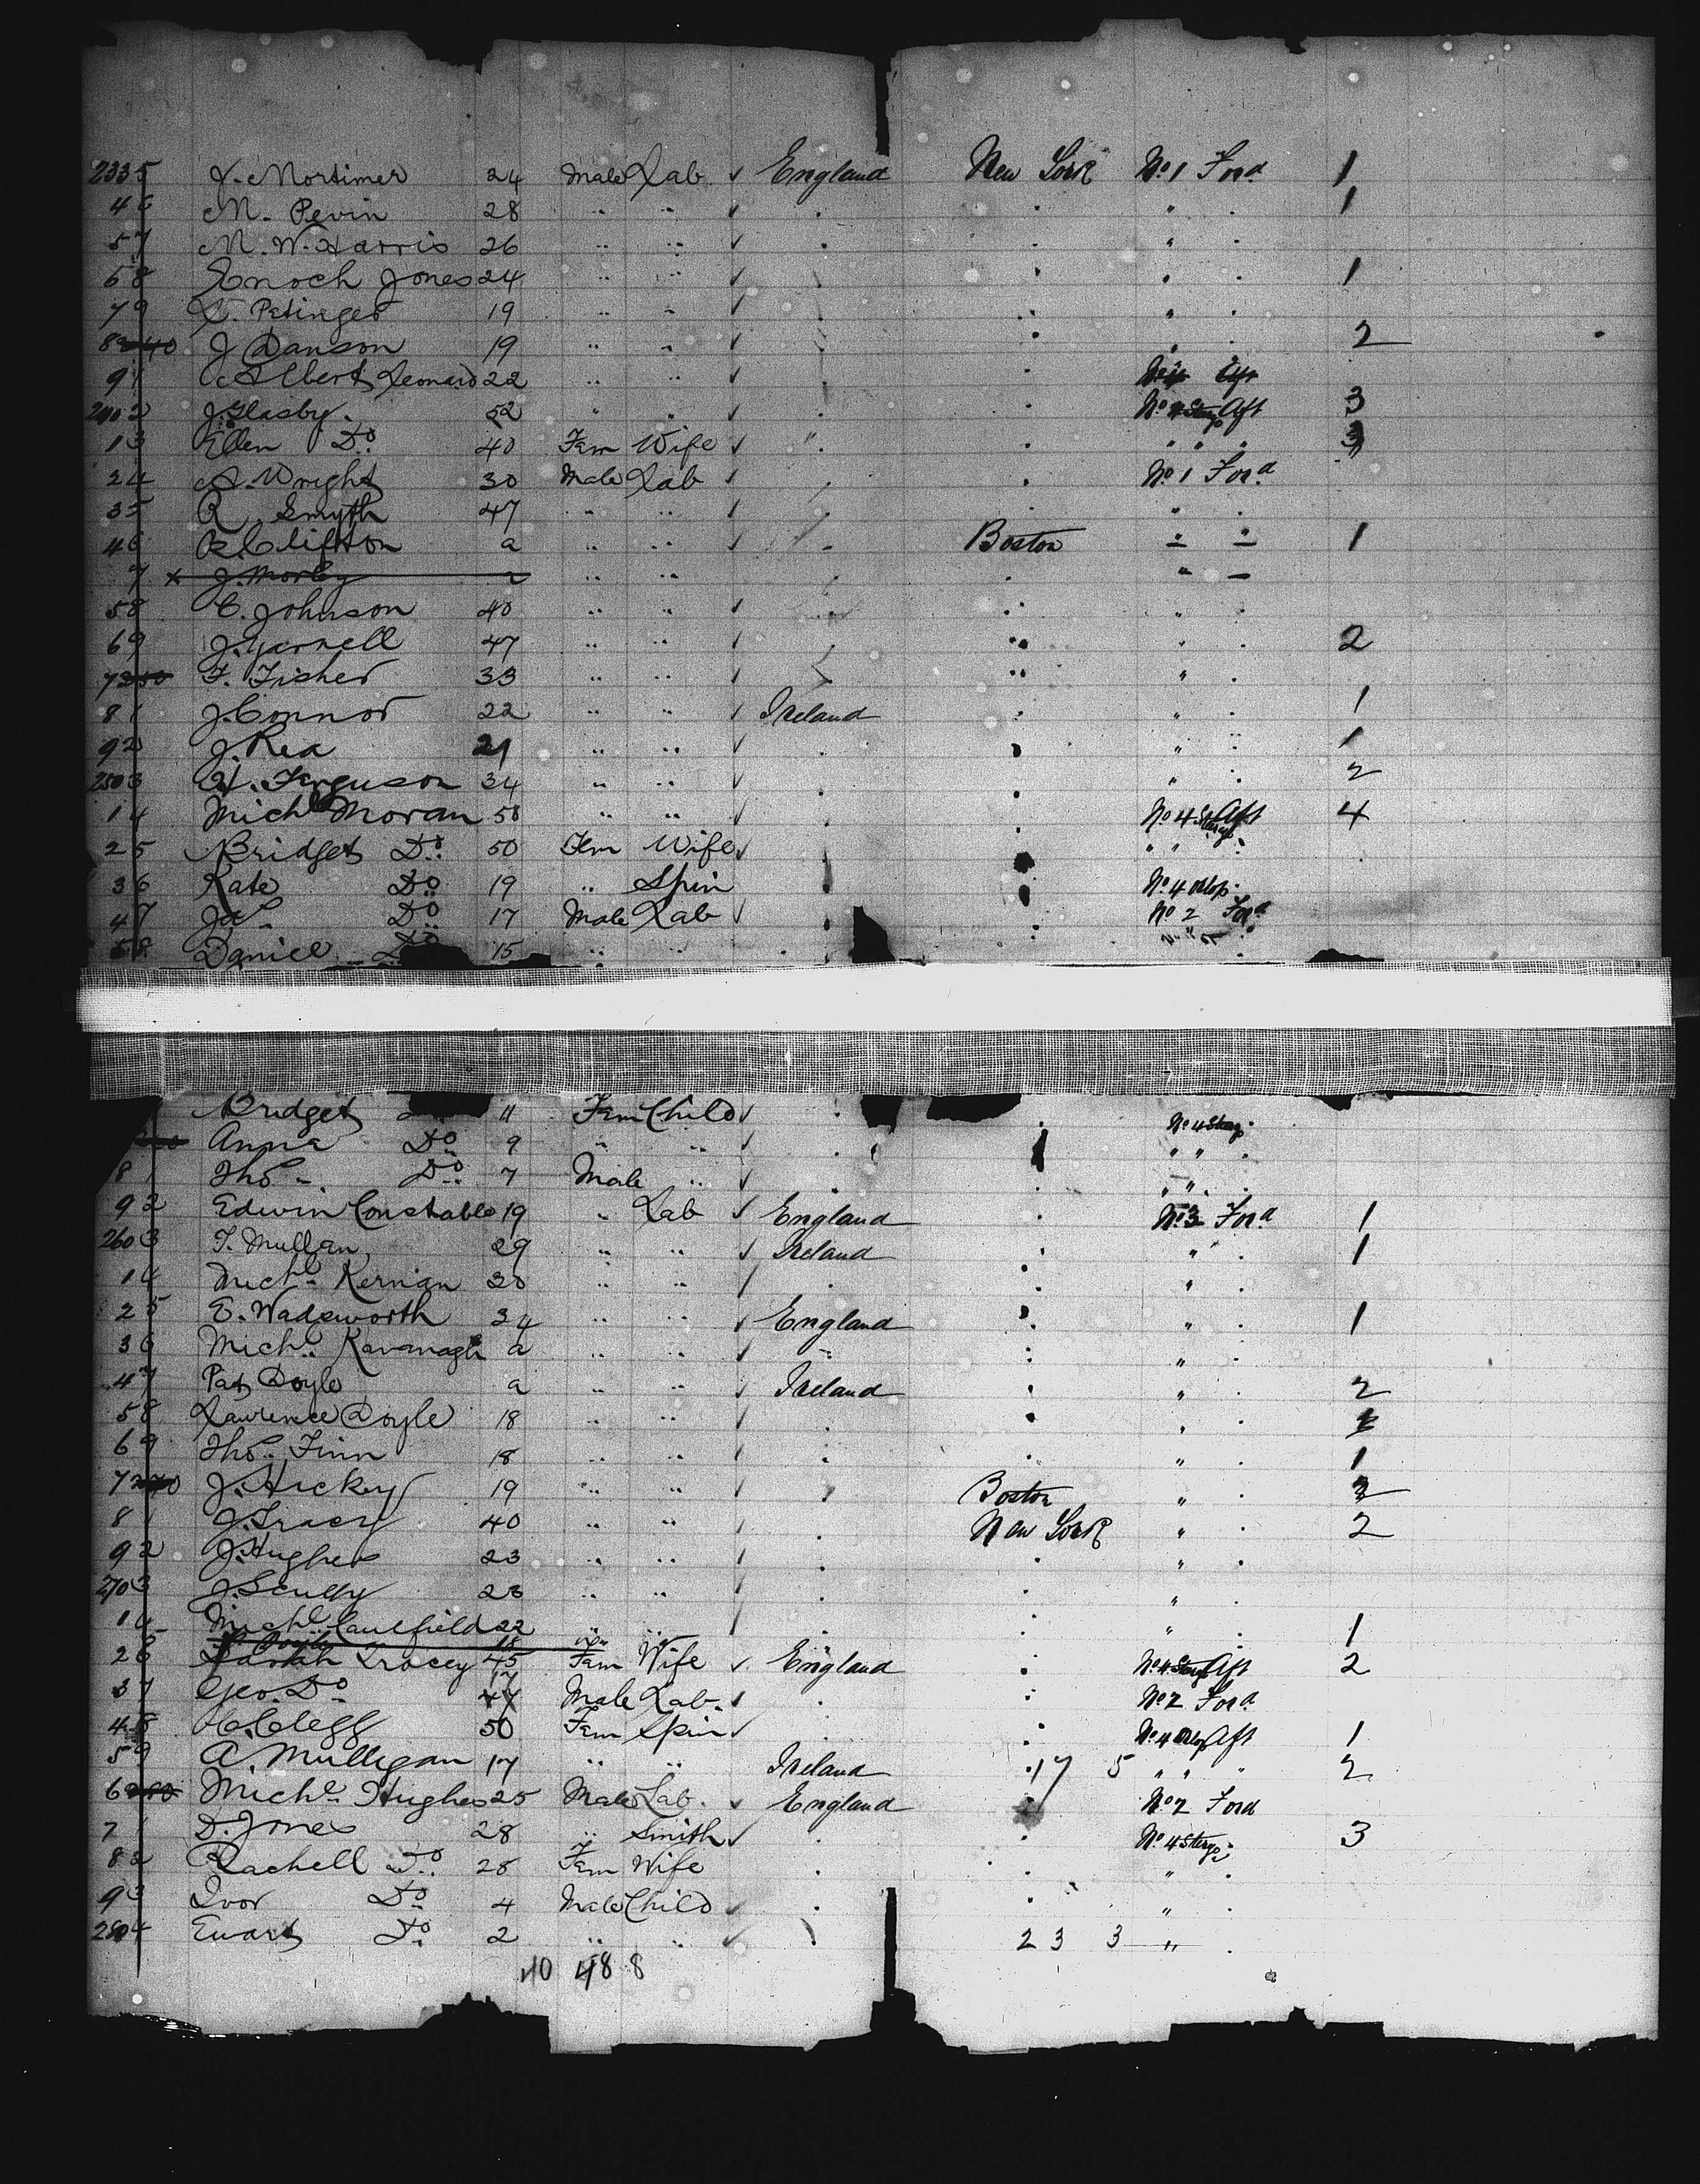 2335 J. Mortimer 24 Male Lab ✓ England New York No. 1 Ford 1
46 M. Pevin 28 " " ✓ . . " . 1
57 M. W. Harris 26 " " ✓ . . " .
68 Enoch Jones 24 " " ✓ . . " . 1
79 Petinger 19 " " ✓ . . " .
8 240 J Danson 19 " " ✓ . . " . 2
91 Albert Leonard 22 " " ✓ . .
2402 J. Glasby. 52 " " ✓ . . No. 4 Sterg Aft 3
13 Ellen Do 40 Fem Wife ✓ " . " " " 3
24 A. Wright 30 Male Lab ✓ . . No. 1 Ford
35 R. Smyth 47 " " ✓ . . " .
46 R. Clifton a " " ✓ . Boston " " 1
7 x J. Morley a " " . . "
58 C. Johnson 40 " " ✓ . . " .
69 J. Yarnell 47 " " ✓ . . " . 2
7 250 F. Fisher 33 " " ✓ . " " .
81 J. Connor 22 " " ✓ Ireland . " . 1
92 J. Rea 21 " " ✓ . . " " 1
2503 H. Ferguson 34 " " ✓ . . " . 2
14 Michl Moran 50 " " ✓ . . No. 4 Sterge Aft 4
25 Bridget Do 50 Fem Wife ✓ . . " " "
36 Kate Do 19 " Spin . . No. 4 Orlop .
47 Jas. Do 17 Male Lab ✓ . . No. 2 Ford
58 Daniel Do 15 " " . . .
Bridget 11 Fem Child ✓ . . No. 4 Sterg .
Anna Do 9 " " ✓ . . " " .
81 Thos. Do 7 Male " ✓ . . " " .
92 Edwin Constable 19 " Lab ✓ England . No. 3 Ford 1
2603 T. Mullan 29 " " ✓ Ireland . " . 1
14 Michl. Kernan 30 " " / . . " .
25 E. Wadsworth 34 " " ✓ England . " . 1
36 Michl. Kavanagh a " " ✓ " . " .
47 Pat Doyle a " " ✓ Ireland . " . 2
58 Lawrence Doyle 18 " " ✓ . . " .
69 Thos. Finn 18 " " ✓ . . " . 1
7 270 J. Hickey 19 " " ✓ . Boston " . 2
81 J. Tracy 40 " " ✓ . New York " . 2
92 J. Hughes 23 " " ✓ . . " .
2703 J. Scully 23 " " ✓ . . " .
14 Michl. Caulfield 22 " " / . . " . 1
5 18
26 Sarah Tracey 45 Fem Wife ✓ England . No. 4 Sterg Aft 2
37 Geo. Do 17 Male Lab. ✓ . . No. 2 Ford
48 Clegg 50 Fem Spin ✓ . . No. 4 Orlop Aft 1
59 A Mulligan 17 " " Ireland 17 5 " " " 2
6 280 Michl. Hughes 25 Male Lab. ✓ England No. 2 Ford
71 D. Jones 28 " Smith ✓ . . No. 4 Sterge. 3
82 Rachell Do 28 Fem Wife . . " .
93 Ivor Do 4 Male Child ✓ . . " .
2804 Ewart Do 2 " " ✓ . 23 3 " .
40 48 8